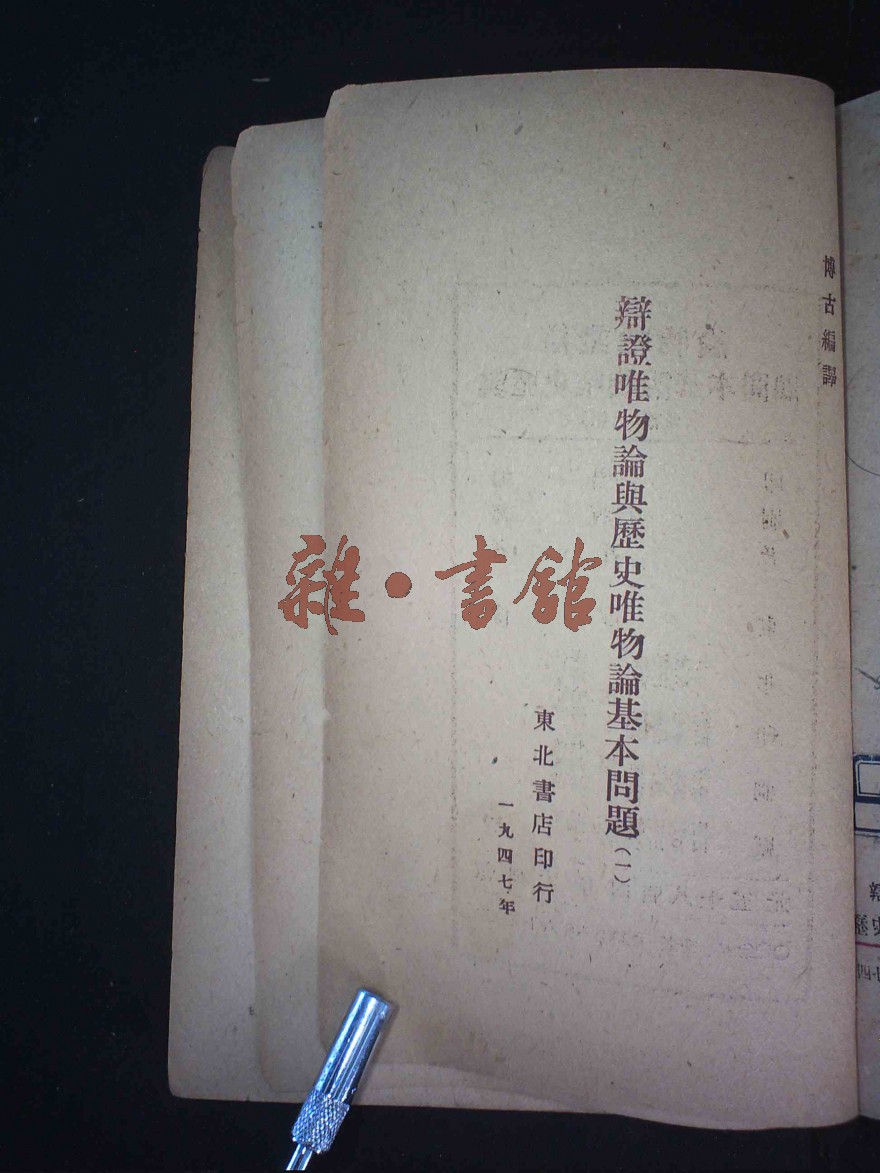 博古編譯
辯證唯物論與歷史唯物論基本問題(一)
東北書店印行
一九四七年
雜·書館